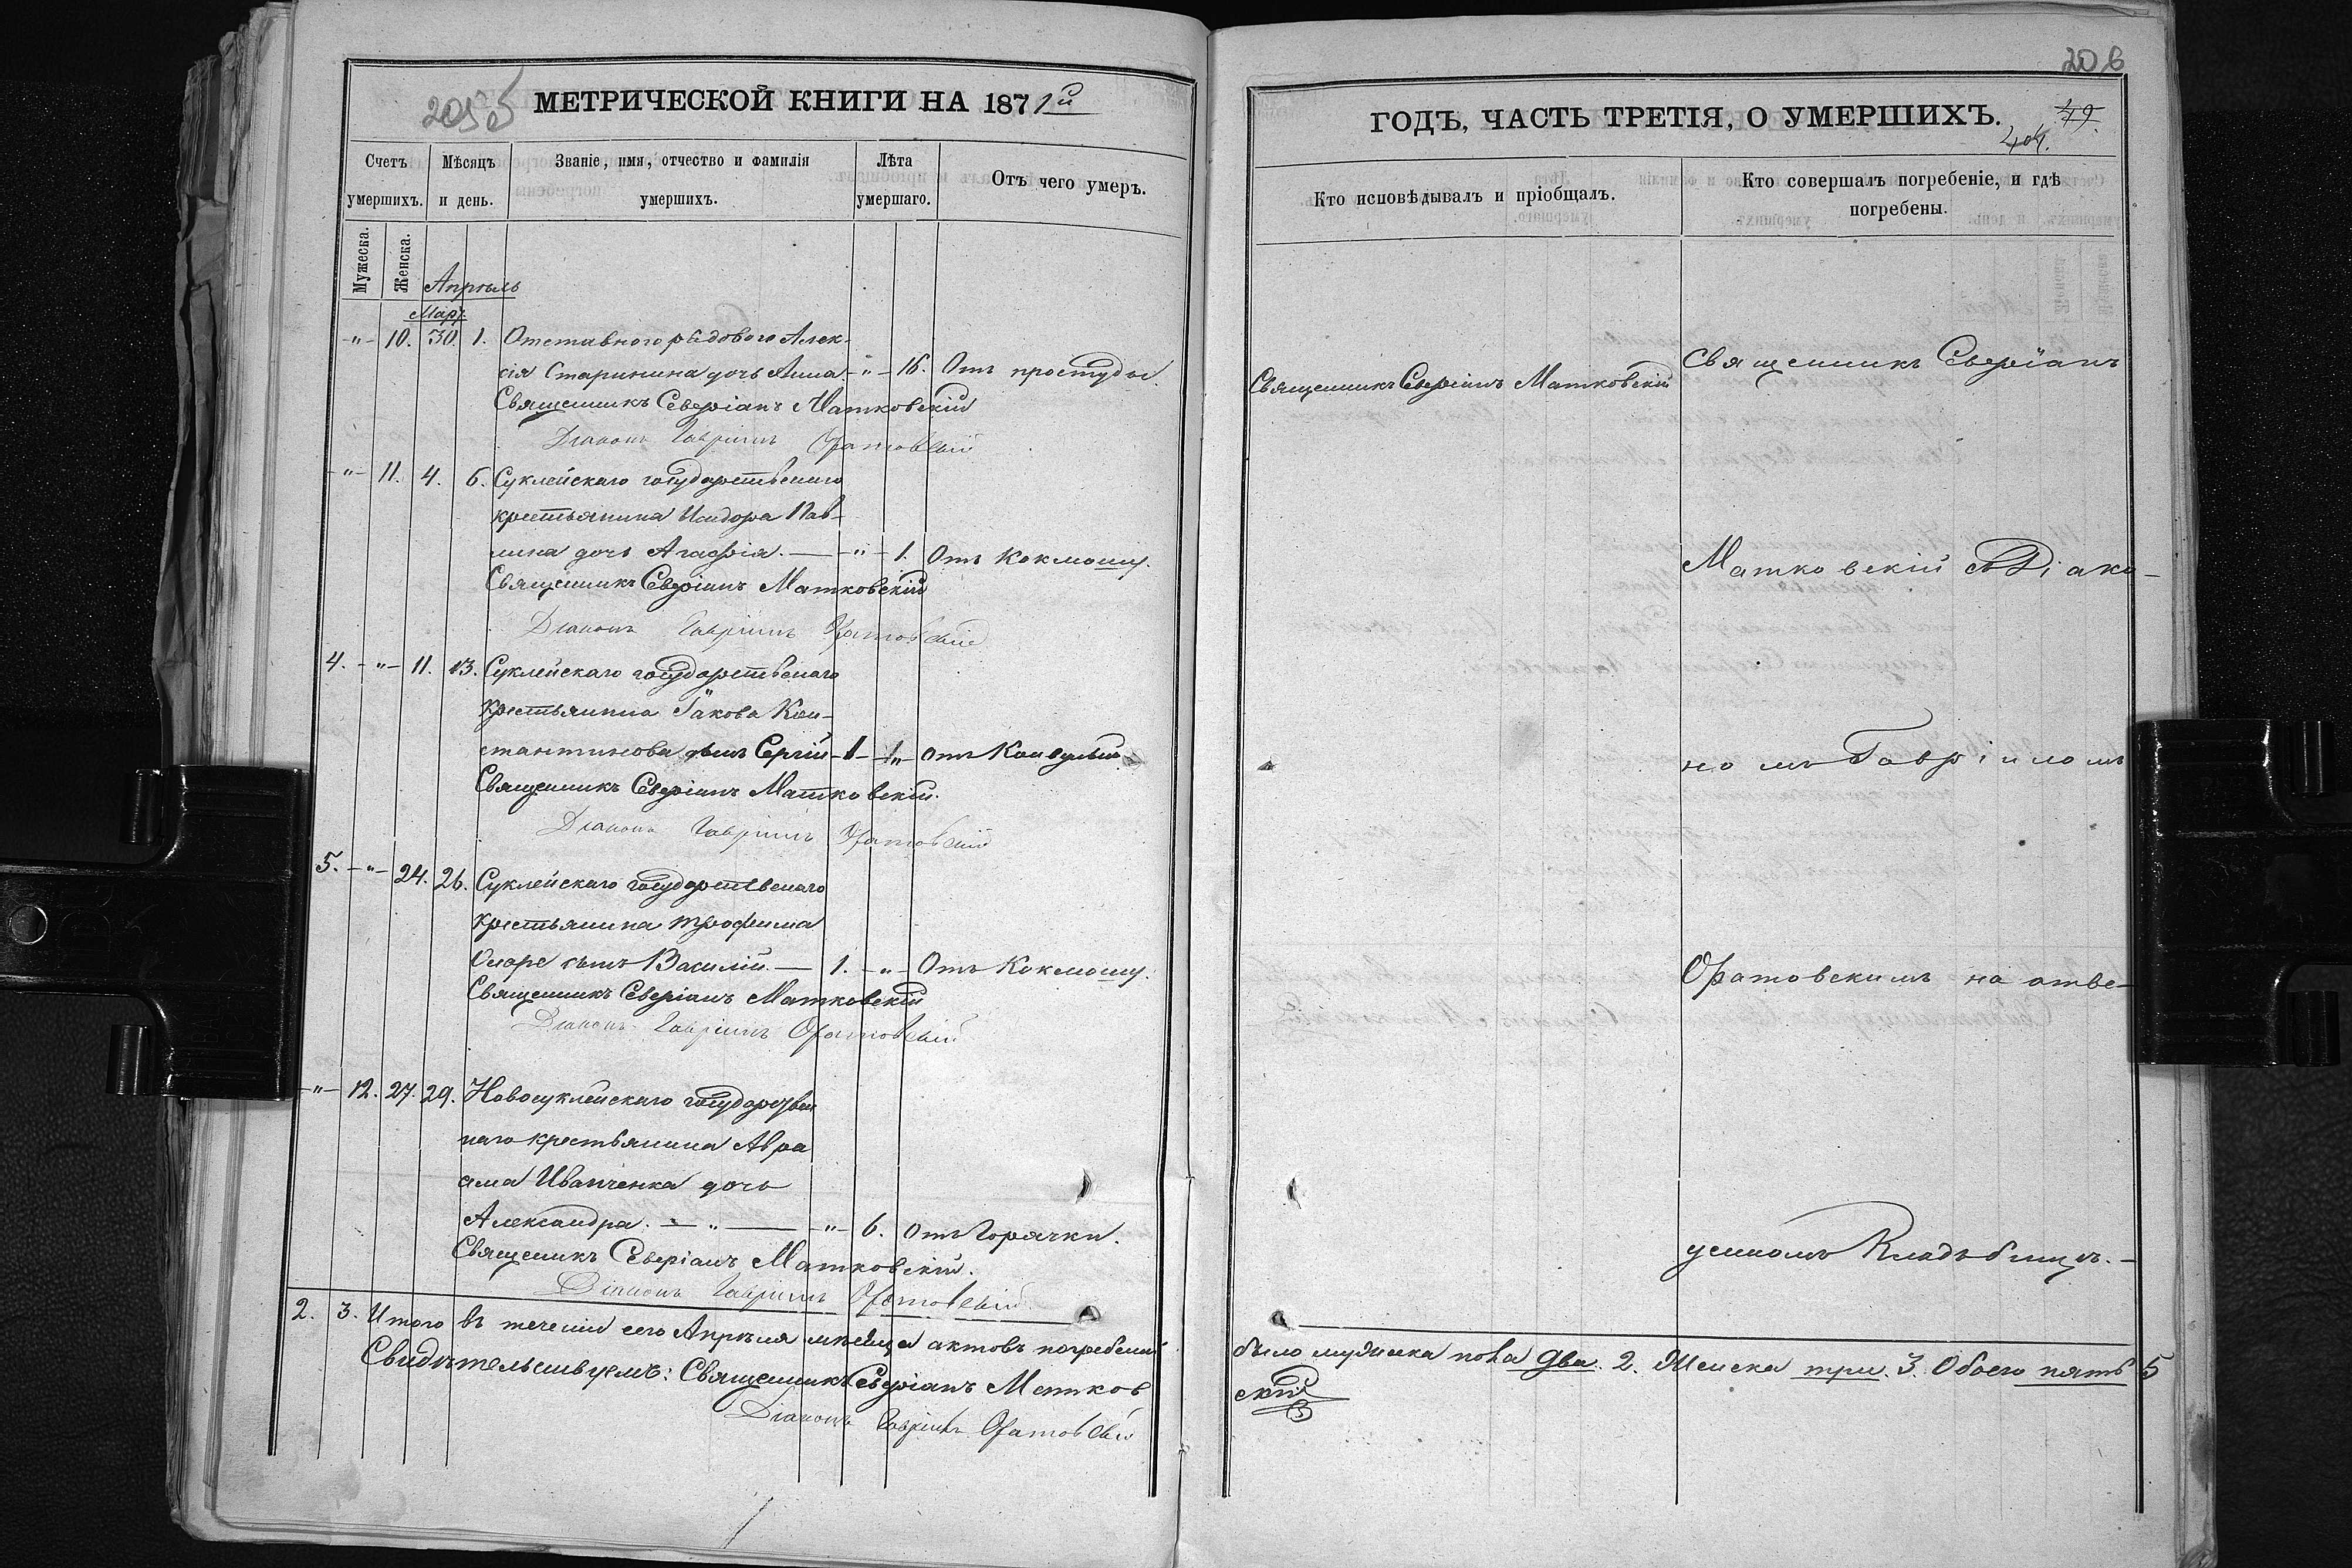 206
205
МЕТРИЧЕСКОЙ КНИГИ НА 1871й
ГОДЪ, ЧАСТЬ ТРЕТІЯ, О УМЕРШИХЪ.
49.
404.
Счетъ умершихъ.
Мѣсяцъ и день.
Званіе, имя, отчество и фамилія умершихъ.
Лѣта умершаго.
Отъ чего умеръ.
Кто исповѣдывалъ и пріобщалъ.
Кто совершалъ погребеніе, и гдѣ погребены.
Мужеска.
Женска.
Апрѣль
Мар.
-"- 10. 30. 1. Отставного рядового Алек-
сія Старинина дочь Анна. -"- 16. Отъ простуды.
Священникъ Северіанъ Матковскій
Діаконъ Гавріилъ Оратовскій
-"- 11. 4. 6. Суклейскаго государственнаго
крестьянина Исидора Пав-
лика дочь Агафія. -"- 1. Отъ Коклюшу.
Священникъ Северіанъ Матковскій
Діаконъ Гавріилъ Оратовскій
4. -"- 11. 13. Суклейскаго государственаго
Крестьянина Іакова Кон-
стантинова сынъ Сергій - 1 - "- Отъ Конвульсіи
Священникъ Северіанъ Матковскій.
Діаконъ Гавріилъ Оратовскій
5. -"- 24. 26. Суклейскаго государственаго
крестьянина Трофима
сынъ Василій. — 1. -"- Отъ Коклюшу.
Священникъ Северіанъ Матковскій
Діаконъ Гавріилъ Оратовскій
-"- 12. 27. 29. Новосуклейскаго государствен
наго крестьянина Авра
ама Иванченка дочь
Александра. - " - -"- 6. отъ Горячки.
Священикъ Северіанъ Матковскій.
Діаконъ Гавріилъ Оратовскій
2. 3. Итого въ теченіи сего Апрѣля мѣсяца актовъ погребенія
Свидѣтельствуемъ: Священникъ Северіанъ Матков
Діаконъ Гавріилъ Оратовскій
Священникъ Северіанъ Матковскій
Священникъ Северіанъ
Матковскій съ Діако-
номъ Гавріиломъ
Оратовскимъ на отве-
денномъ Кладбищѣ. -
было мужеска пола два. 2. Женска три. 3. Обоего пять 5
скій